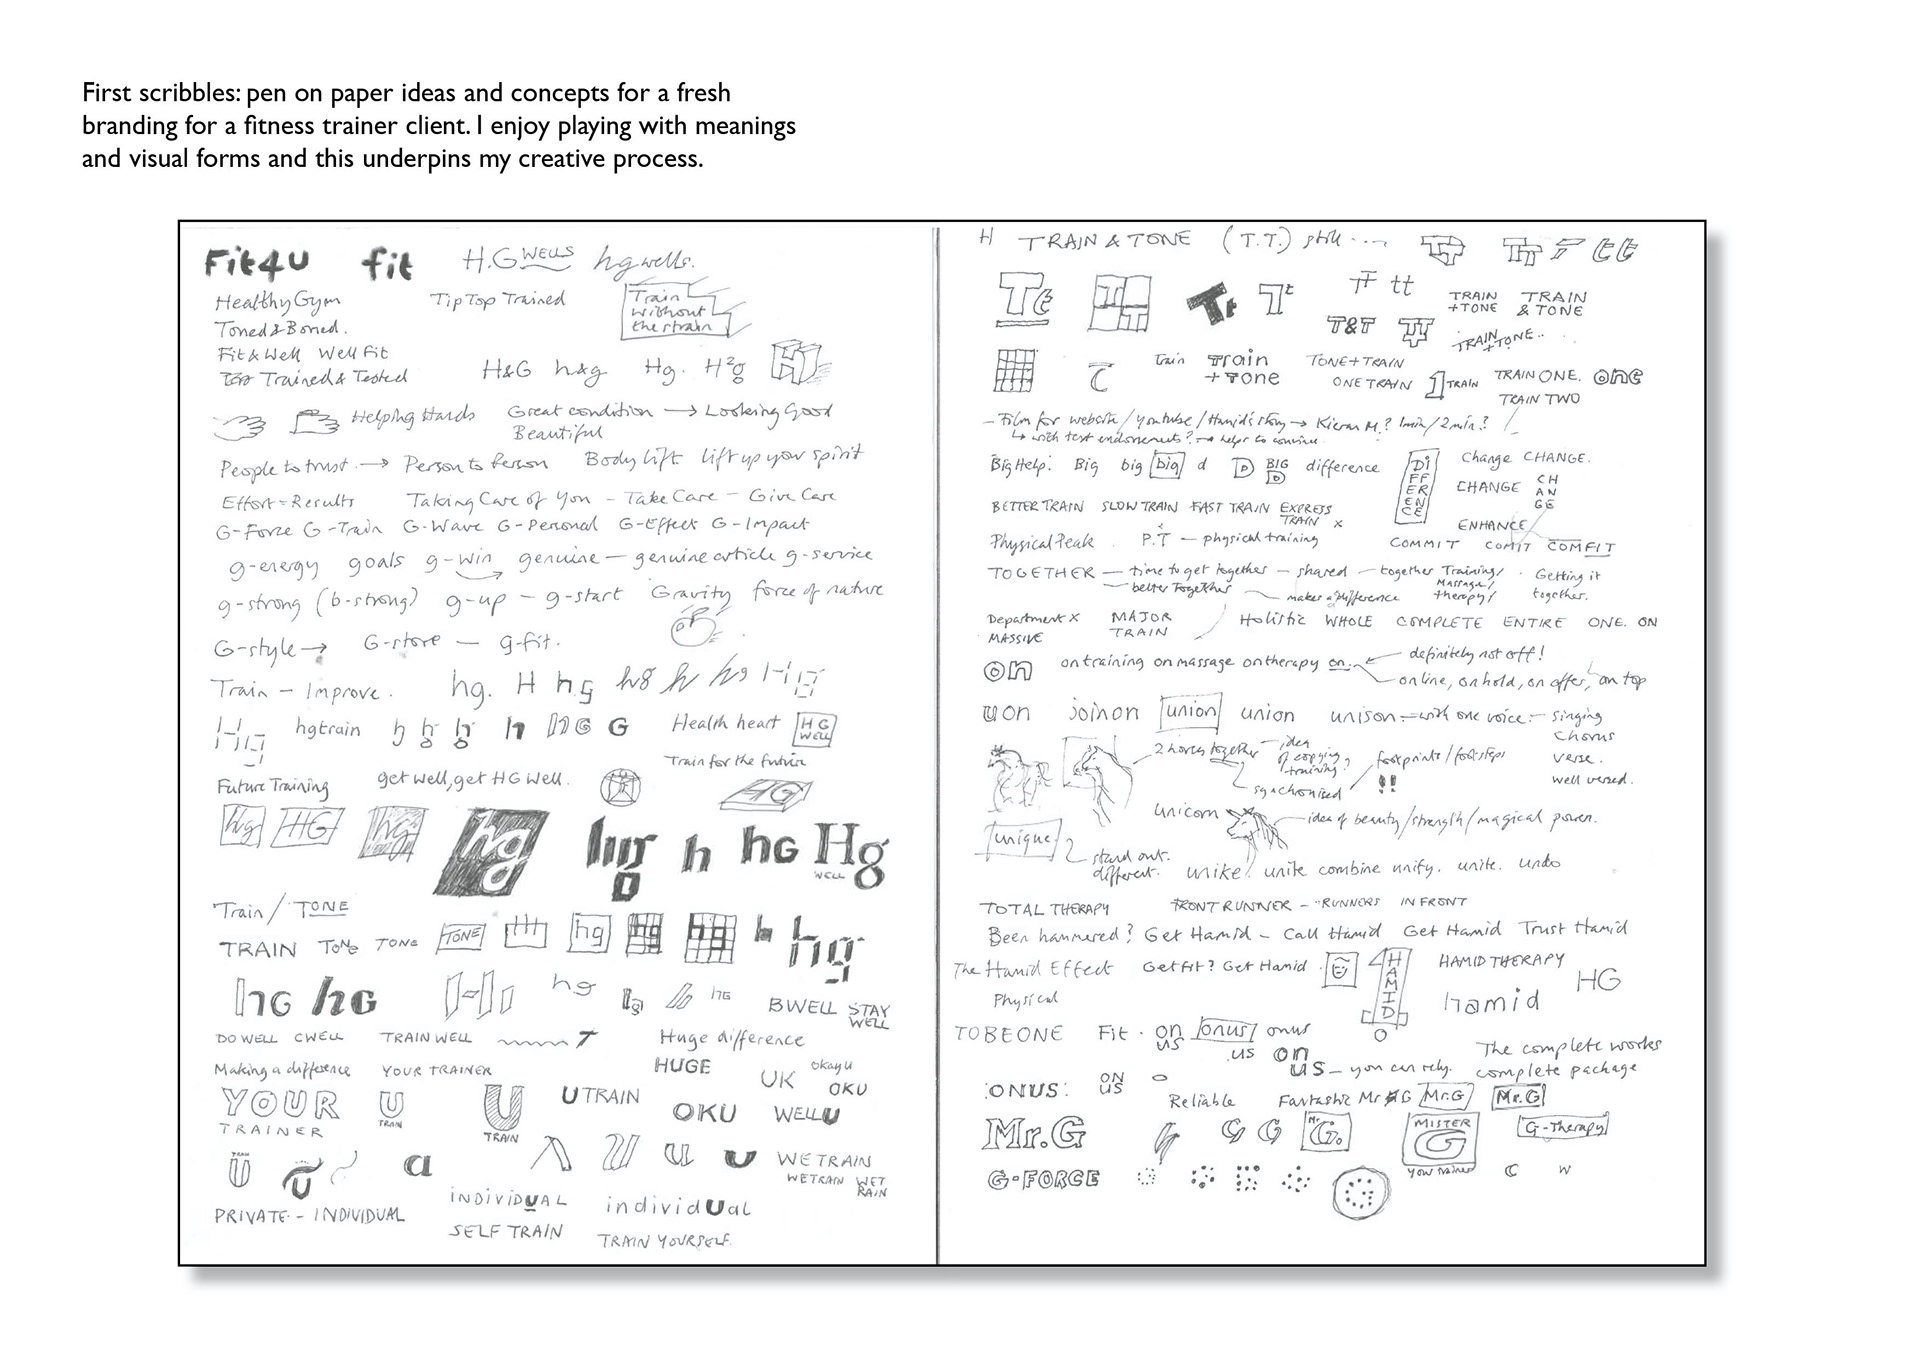 First scribbles: pen on paper ideas and concepts for a fresh
branding for a fitness trainer client. I enjoy playing with meanings
and visual forms and this underpins my creative process.
Fit4U fit H.G WELLS hgwells.
Healthy Gym TipTop Trained Train
Toned & Boned. without
the strain
Fit & Well Well Fit
Trained & Tested H&G h&g Hg. H²g H
Helping Hands Great condition → Looking Good
Beautiful
People to trust → Person to Person Body lift lift up your spirit
Effort = Results Taking Care of You – Take Care – Give Care
G-Force G-Train G-Wave G-Personal G-Effect G-Impact
g-energy goals g-win genuine – genuine article g-service
g-strong (b-strong) g-up – g-start Gravity force of nature
G-style → G-store – g-fit.
Train – Improve. hg. H h.g hg h hg Hg
Hg hgtrain h hg hg h hG G Health heart HG
WELL
Train for the future
Future Training get well, get HG Well. HG
hg HG hg hg hg h hG Hg
WELL
Train / TONE
TRAIN TONE TONE TONE hg Hg hg h hg
hG hG H hg hg h hG BWELL STAY
WELL
DO WELL CWELL TRAIN WELL T Huge difference
Making a difference YOUR TRAINER HUGE UK okayu
OKU
YOUR U U U TRAIN OKU WELLU
TRAINER TRAIN TRAIN
TRAIN
U U a U u U WE TRAIN
WETRAIN WET
RAIN
PRIVATE – INDIVIDUAL INDIVIDUAL individUal
SELF TRAIN TRAIN YOURSELF.
H TRAIN & TONE (T.T.) still .... TT tt
Tt TT Tt Tt TT tt TRAIN
+TONE TRAIN
& TONE
T&T TT TRAIN
+TONE..
Train Train
+ Tone TONE+TRAIN
ONE TRAIN 1 TRAIN TRAIN ONE. one
TRAIN TWO
– Film for website / youtube / Hamid's story → Kieran M.? 1min / 2min?
↳ with text endorsements? → helps to continue
Big Help: Big big big d D BIG
D difference DIFFERENCE Change CHANGE.
CHANGE CH
AN
GE
BETTER TRAIN SLOW TRAIN FAST TRAIN EXPRESS
TRAIN x
ENHANCE
Physical Peak P.T – physical training COMMIT COMIT COMFIT
TOGETHER – time to get together – shared – together Training/
Massage/
therapy/ Getting it
together.
– better together makes a difference
Department X MAJOR
TRAIN Holistic WHOLE COMPLETE ENTIRE ONE. ON
MASSIVE
on on training on massage on therapy on. definitely not off!
online, on hold, on offer, on top
u on join on union union unison – with one voice – singing
chorus
verse.
well versed.
2 horses together – idea
of copying
training?
synchronised footprints / footsteps
!!
unicorn – idea of beauty / strength / magical power.
unique
stand out.
different. unike! unite combine unify. unite. undo
TOTAL THERAPY FRONT RUNNER – RUNNERS IN FRONT
Been hammered? Get Hamid – Call Hamid Get Hamid Trust Hamid
The Hamid Effect Get fit? Get Hamid HAMID HAMID THERAPY HG
Physical hamid
TO BE ONE Fit. on
us onus onus
us on
us – you can rely. The complete works
complete package
ONUS: ON
US Reliable Fantastic Mr G Mr.G Mr.G
Mr.G G G Mr.
G. MISTER
G
YOUR TRAINER G-Therapy
G-FORCE G C W